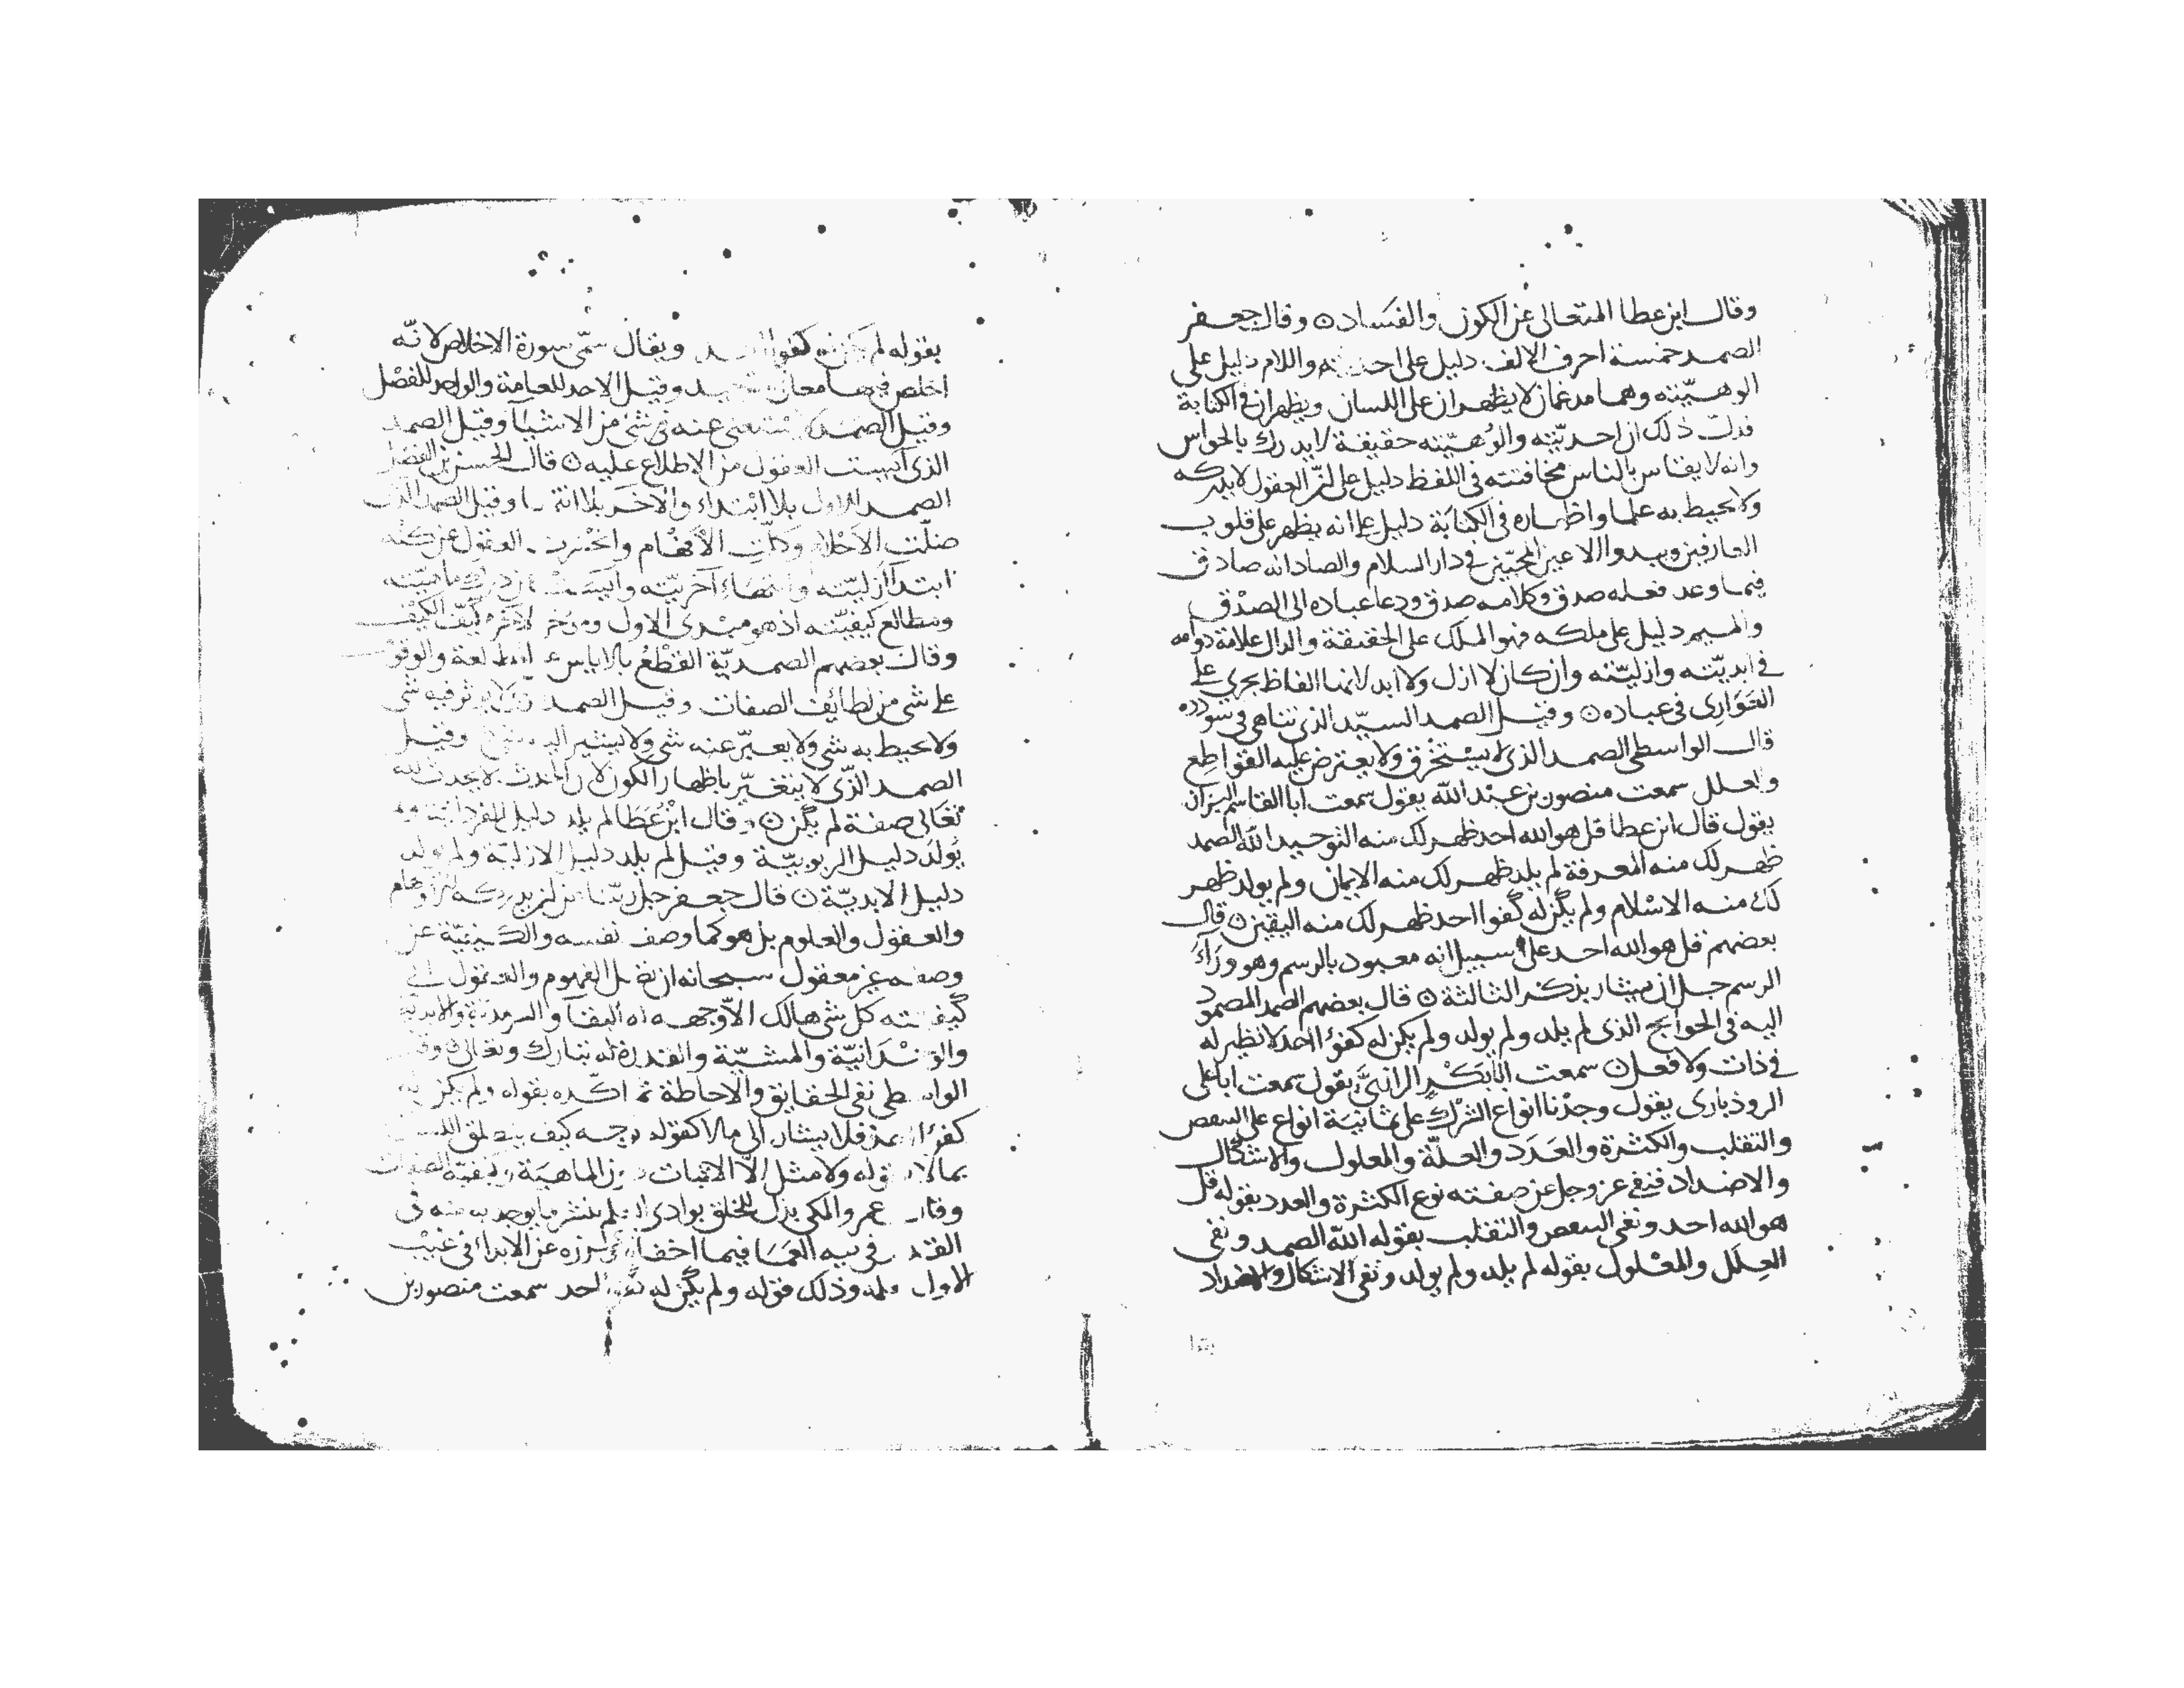 وقال ابن عطا المتعالى عن الكون والفساد ۞ وقال جعفر
الصمد خمسة احرف الالف دليل على احديته واللام دليل على
الوهيّته وهما مدغمان لا يظهران على اللسان ويظهران فى الكتابة
فدلت ذلك ان احديّته والوُهيّته حقيقة لا يدرك بالحواس
وانه لا يقاس بالناس مخافتته فى اللفظ دليل على ان العقول لا يدركه
ولا يحيط به علما واظهاره فى الكتابة دليل على انه يظهر على قلوب
العارفين ويبدوا لاعين المحبّين فى دار السلام والصاد انه صادق
فيما وعد فعله صدق وكلامه صدق ودعا عباده الى الصدْق
والميم دليل على ملكه فهو الملك على الحقيقة والدال علامة دوامه
فى ابديّته وازليّته وان كان لا ازل ولا ابد لانهما الفاظ يجرى على
العَوَارى فى عباده ۞ وقيل الصمد السيّد الذى تناهى فى سودده
قال الواسطى الصمد الذى لا يستَغْرق ولا يعترض عليه القواطع
والعلل سمعت منصور بن عبْد الله يقول سمعت ابا القاسم البزاز
يقول قال ابن عطا قل هو الله احد ظهر لك منه التوحيد الله الصمد
ظهر لك منه المعرفة لم يلد ظهر لك منه الايمان ولم يولد ظهر
لك منه الاسْلام ولم يكن له كفوا احد ظهر لك منه اليقين ۞ قال
بعضهم قل هو الله احد على سبيل انه معبود بالرسم وهو ورَآءَ
الرسم جل ان يشار بذكر الثالثة ۞ قال بعضهم الصمد المصمود
اليه فى الحوايج الذى لم يلد ولم يولد ولم يكن له كفوًا احد لا نظير له
فى ذات ولا فعل ۞ سمعت ابا بَكْر الرازىَّ يقول سمعت ابا على
الروذبارى يقول وجدْنا انواع الشرْك على ثمانيَة انواع على النقص
والتقلب والكثرة والعَدَد والعلّة والمعلول والاشكال
والاضداد فنفى عز وجل عن صفته نوع الكثرة والعدد بقوله قل
هو الله احد ونفى النقص والتقلب بقوله الله الصمد ونفى
العِلَل والمعْلول بقوله لم يلد ولم يولد ونفى الاشكال والاضداد
بقوله لم يكن له كفوا احد ويقال سمّى سورة الاخلاص لانّه
اخلص فيها معانى وقيل الاحد للعامة والواحد للفصْل
وقيل الصمَد يستغنى عنه فى شئ من الاشيَآءِ وقيل الصمد
الذى آيست العقول من الاطلاع عليه ۞ قال الحسين بن الفضل
الصمد الاول بلا ابتداء والاخر بلا انتهاء وقيل الصمد الذى
ضلّت الاحْلام وكلّتِ الافهَام العقول عن كنه
ابتدآ ازليّته وانتهَاءِ آخريّته
ومطالع كيفيّته اذ هو مبْدى الاول ومؤخر الاخر وكيّف الكيْف
وقال بعضهم الصمديّة القطْعُ بالاياس والوقوف
على شئ من لطايف الصفات وقيل الصمد الذى لا يوثر فيه شئ
ولا يحيط به شئ ولا يعبّر عنه شئ ولا يشير اليه وقيل
الصمد الذّى لا يتغيّر باظهار الكون لان الحدث لا يحدث لله
تعَالى صفة لم يكن ۞ وقال ابْن عَطَا لم يلد دليل الفردانيته ولم
يُولد دليل الربوبيّة وقيل لم يلد دليل الازليّة ولم يولد
دليل الابديّة ۞ قال جعفر جل ربّنا من ان يدركه الاوهام
والعقول والعلوم بل هو كما وصف نفسه والكيفيّة عن
وصفه غير معقول سبحانه ان تصل الفهوم والعقول الى
كيفيته كل شئ هالك الّا وجهه له البقآ والسرمديّة والابديّة
والوحْدَانيّة والمشيّة والقدرة له تبارك وتعالى
الواسطى نفى الحقايق والاحاطة ثم اكّده بقوله ولم يكن له
كفوًا احد فلا يشار الى مالا كفو له بوجه كيف ينطلق
بمالا له ولا مثل الّا الاثبات دون الماهيَة وكيفيّة الصفات
وقال عمرو المكى بوادى لم
القد فى تيه العمَا فيما اخفا عن الابداء فى غيْب
الاول وذلك قوله ولم يكن له كفوا احد سمعت منصور بن